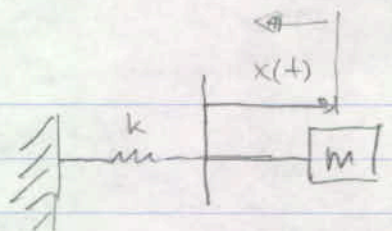 x(t)
k
m